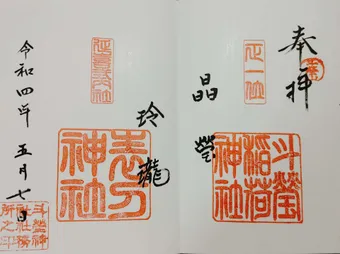 奉拝
正一位
晶瑩
斗瑩稲荷神社
延喜式社
玲瓏
表刀神社
令和四年五月七日
斗瑩神社社務所之印